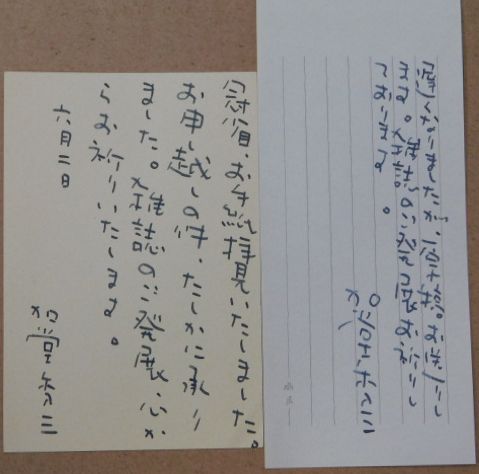 なりましたが、
ます。雑誌のご発展お祈りし
ております。
冠省、お手紙拝見いたしました。
お申し越しの件、たしかに承り
ました。雑誌のご発展、心か
らお祈りいたします。
六月二日
加堂秀三